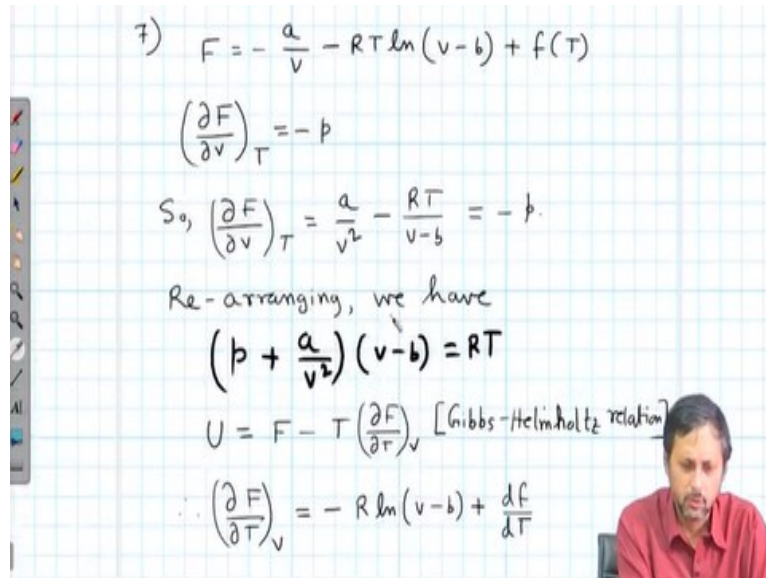 7) F = - a/v - RT ln(v-b) + f(T)
(∂F/∂v)_T = - p
So, (∂F/∂v)_T = a/v² - RT/v-b = - p.
Re-arranging, we have
(p + a/v²)(v-b) = RT
U = F - T(∂F/∂T)_V [Gibbs-Helmholtz relation]
∴ (∂F/∂T)_V = - R ln(v-b) + df/dT
AI